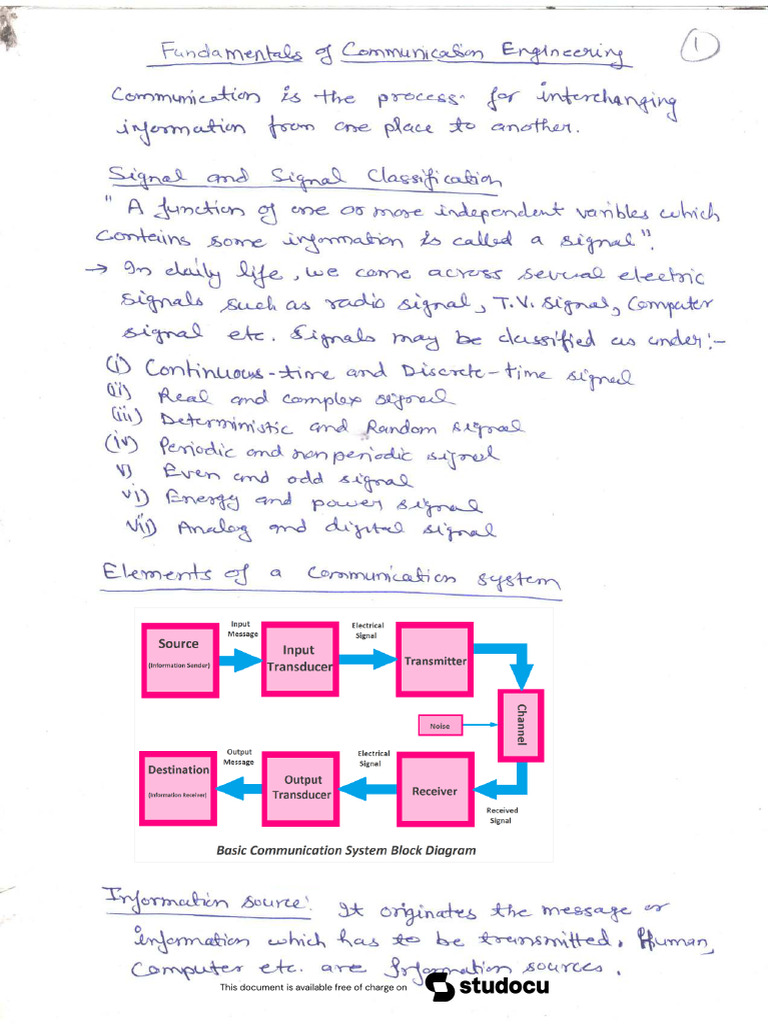 Fundamentals of Communication Engineering
1
Communication is the process for interchanging
information from one place to another.
Signal and Signal Classification
" A function of one or more independent varibles which
contains some information is called a signal".
→ In daily life, we come across several electric
signals such as radio signal, T.V. signal, Computer
signal etc. Signals may be classified as under:-
(i) Continuous-time and Discrete-time signal
(ii) Real and complex signal
(iii) Deterministic and Random signal
(iv) Periodic and nonperiodic signal
v) Even and odd signal
vi) Energy and power signal
vii) Analog and digital signal
Elements of a Communication system
Source
(Information Sender)
Input
Message
Input
Transducer
Electrical
Signal
Transmitter
Channel
Noise
Destination
(Information Receiver)
Output
Message
Output
Transducer
Electrical
Signal
Receiver
Received
Signal
Basic Communication System Block Diagram
Information source: It originates the message or
information which has to be transmitted. Human,
Computer etc. are Information sources.
This document is available free of charge on
studocu